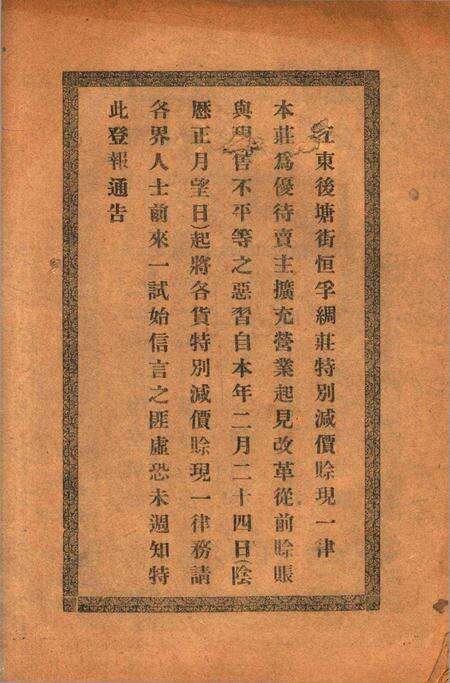 江東後塘街恒孚綢莊特別減價賒現一律
本莊爲優待賣主擴充營業起見改革從前賒賬
與現售不平等之惡習自本年二月二十四日(陰
曆正月望日)起將各貨特別減價賒現一律務請
各界人士前來一試始信言之匪虛恐未週知特
此登報通告